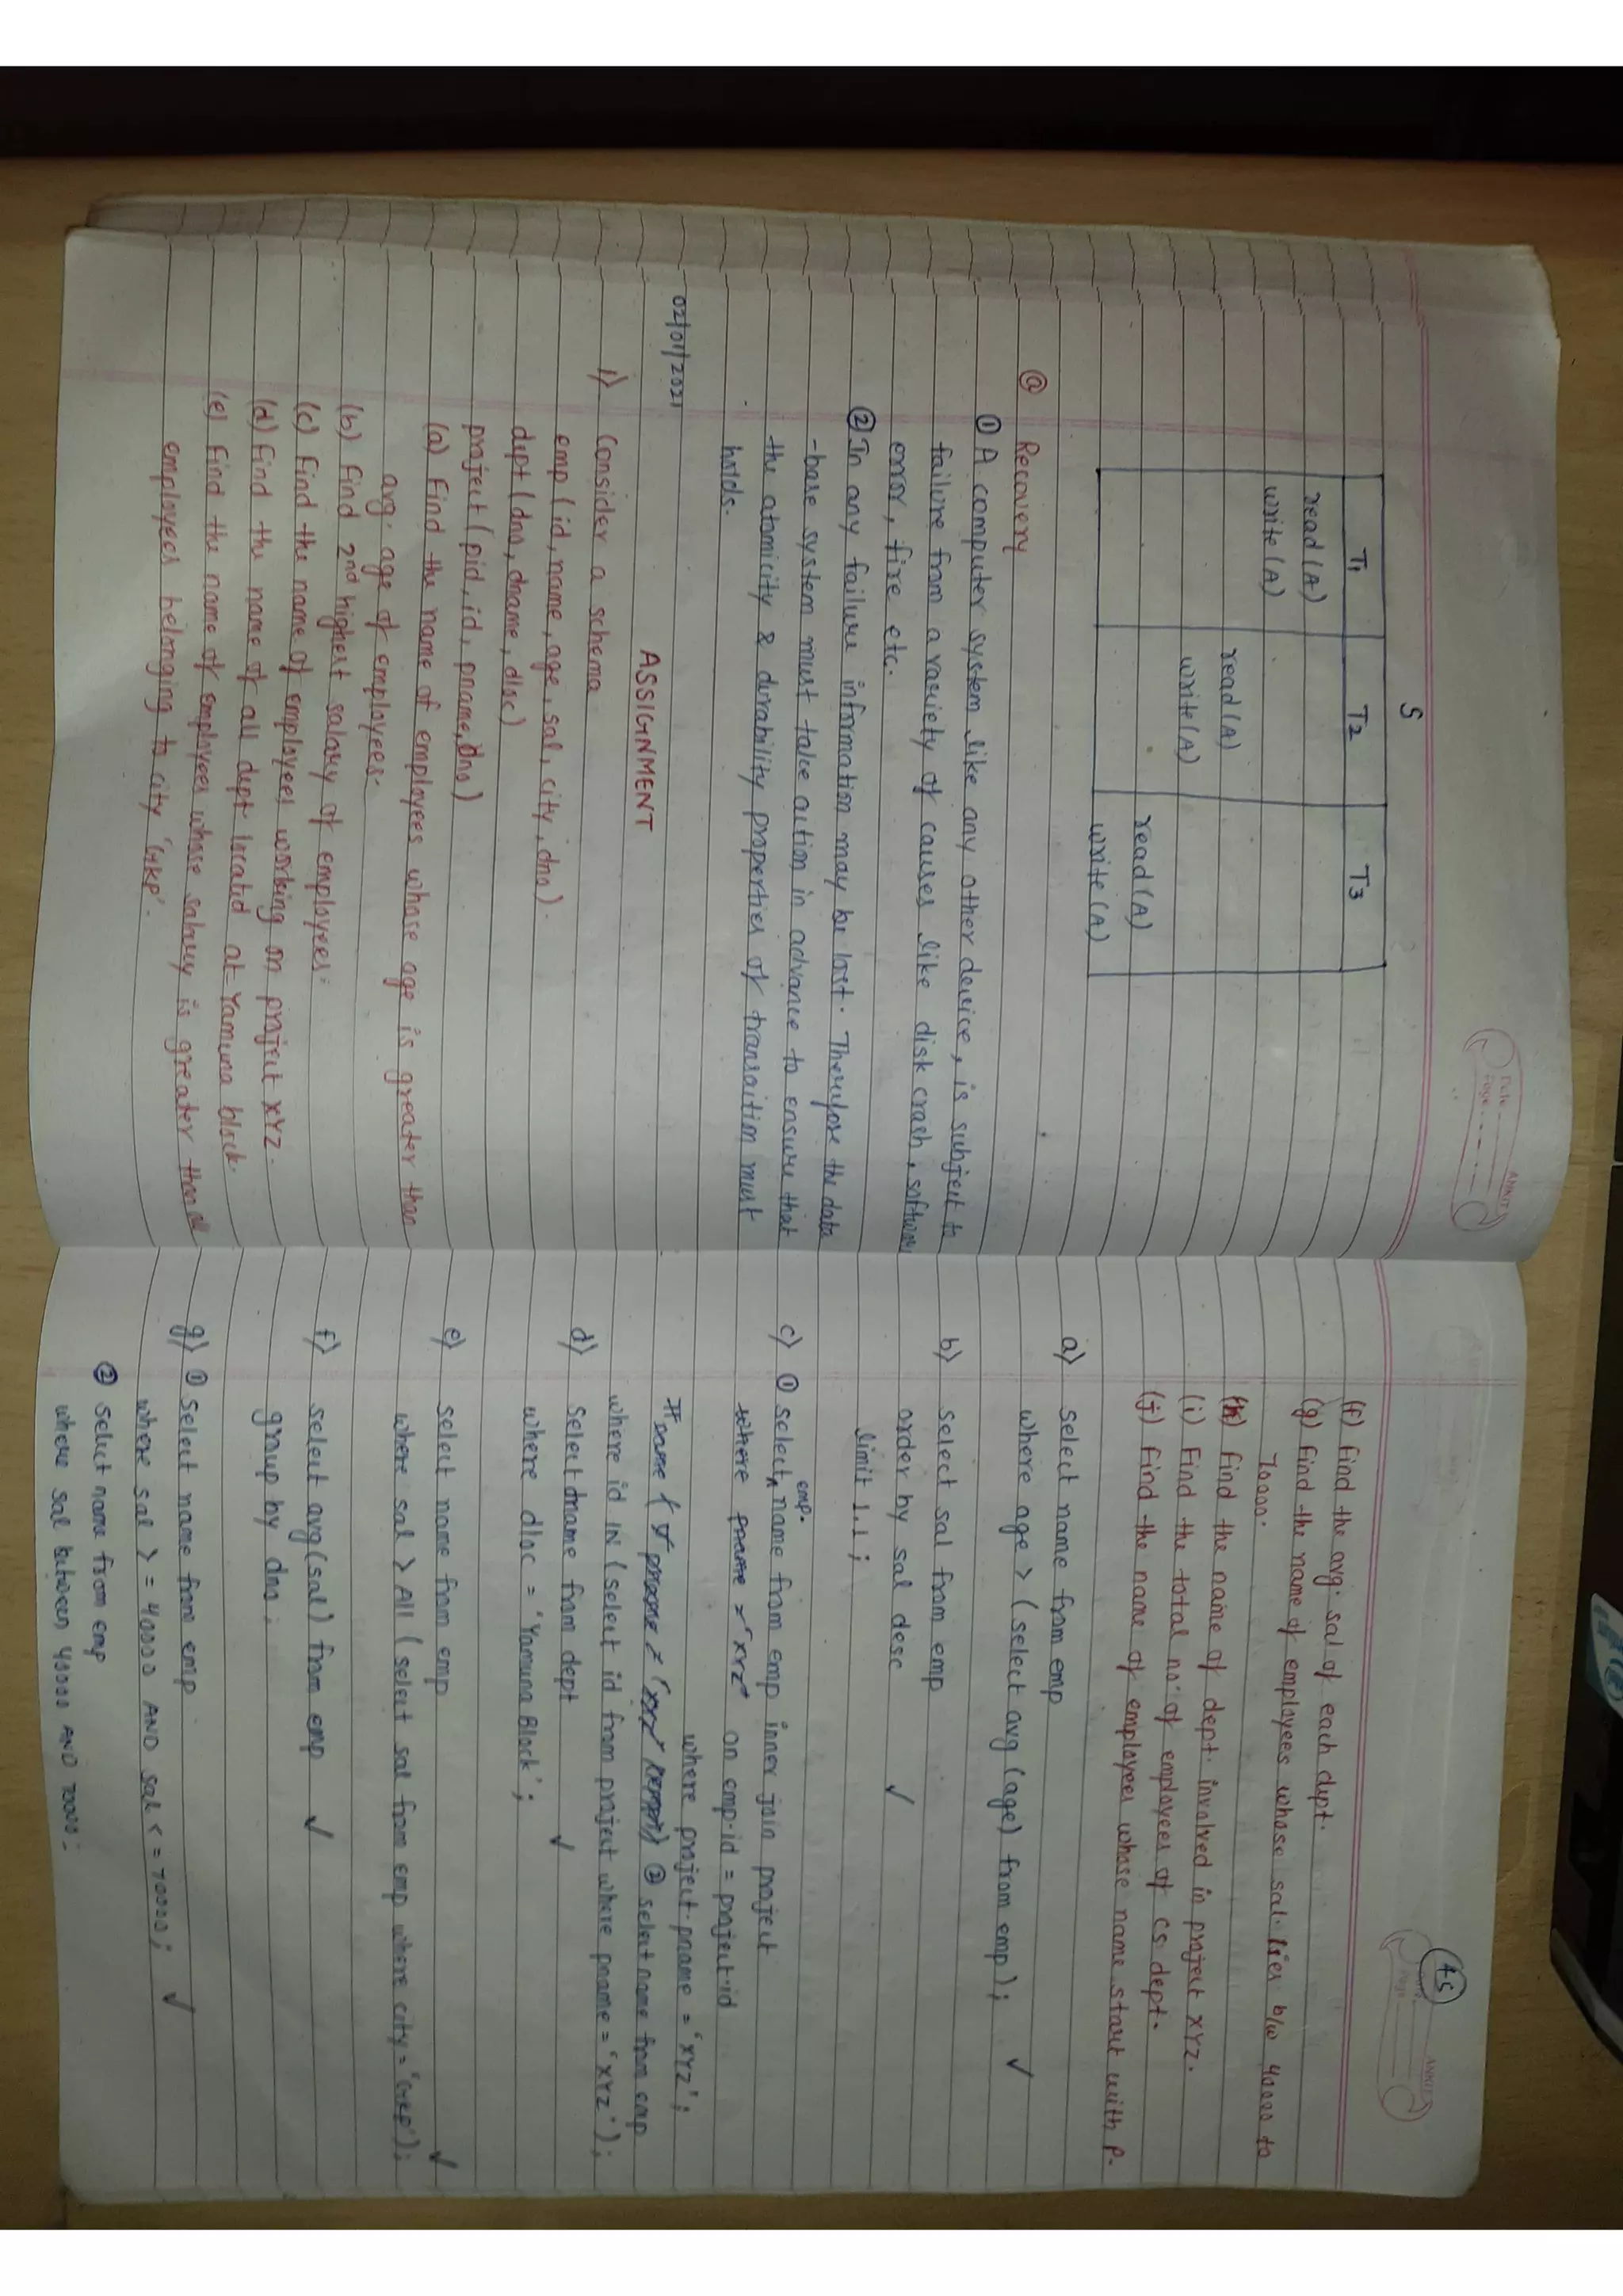 Date
Page
ANKIT
S
T1 T2 T3
read (A)
write (A)
read (A)
write (A)
read (A)
write (A)
@ Recovery
① A computer system like any other device, is subject to
failure from a variety of causes like disk crash, software
error, fire etc.
② In any failure information may be lost. Therefore the data
-base system must take action in advance to ensure that
the atomicity & durability properties of transaction must
holds.
02/01/2021
ASSIGNMENT
1) Consider a schema
emp (id, name, age, sal, city, dno).
dept (dno, dname, dloc)
project (pid, id, pname, dno)
(a) Find the name of employees whose age is greater than
avg. age of employees.
(b) Find 2nd highest salary of employees.
(c) Find the name of employees working on project XYZ.
(d) Find the name of all dept located at Yamuna block.
(e) Find the name of employees whose salary is greater than all
employees belonging to city 'GKP'.
75
ANKIT
(f) Find the avg. sal of each dept.
(g) Find the name of employees whose sal. lies b/w 40000 to
70000.
(h) Find the name of dept. involved in project XYZ.
(i) Find the total no. of employees of cs dept.
(j) Find the name of employees whose name start with P.
a) select name from emp
where age > (select avg (age) from emp); ✓
b) select sal from emp
order by sal desc ✓
limit 1,1;
c) ① select emp. name from emp inner join project
where pname = 'XYZ' on emp.id = project.id
where project.pname = 'XYZ';
② select name from emp
where id IN (select id from project where pname = 'XYZ');
d) select dname from dept ✓
where dloc = 'Yamuna Block';
e) select name from emp ✓
where sal > All (select sal from emp where city = 'GKP');
f) select avg(sal) from emp ✓
group by dno;
g) ① select name from emp
where sal >= 40000 AND sal <= 70000; ✓
② select name from emp
where sal between 40000 AND 70000;